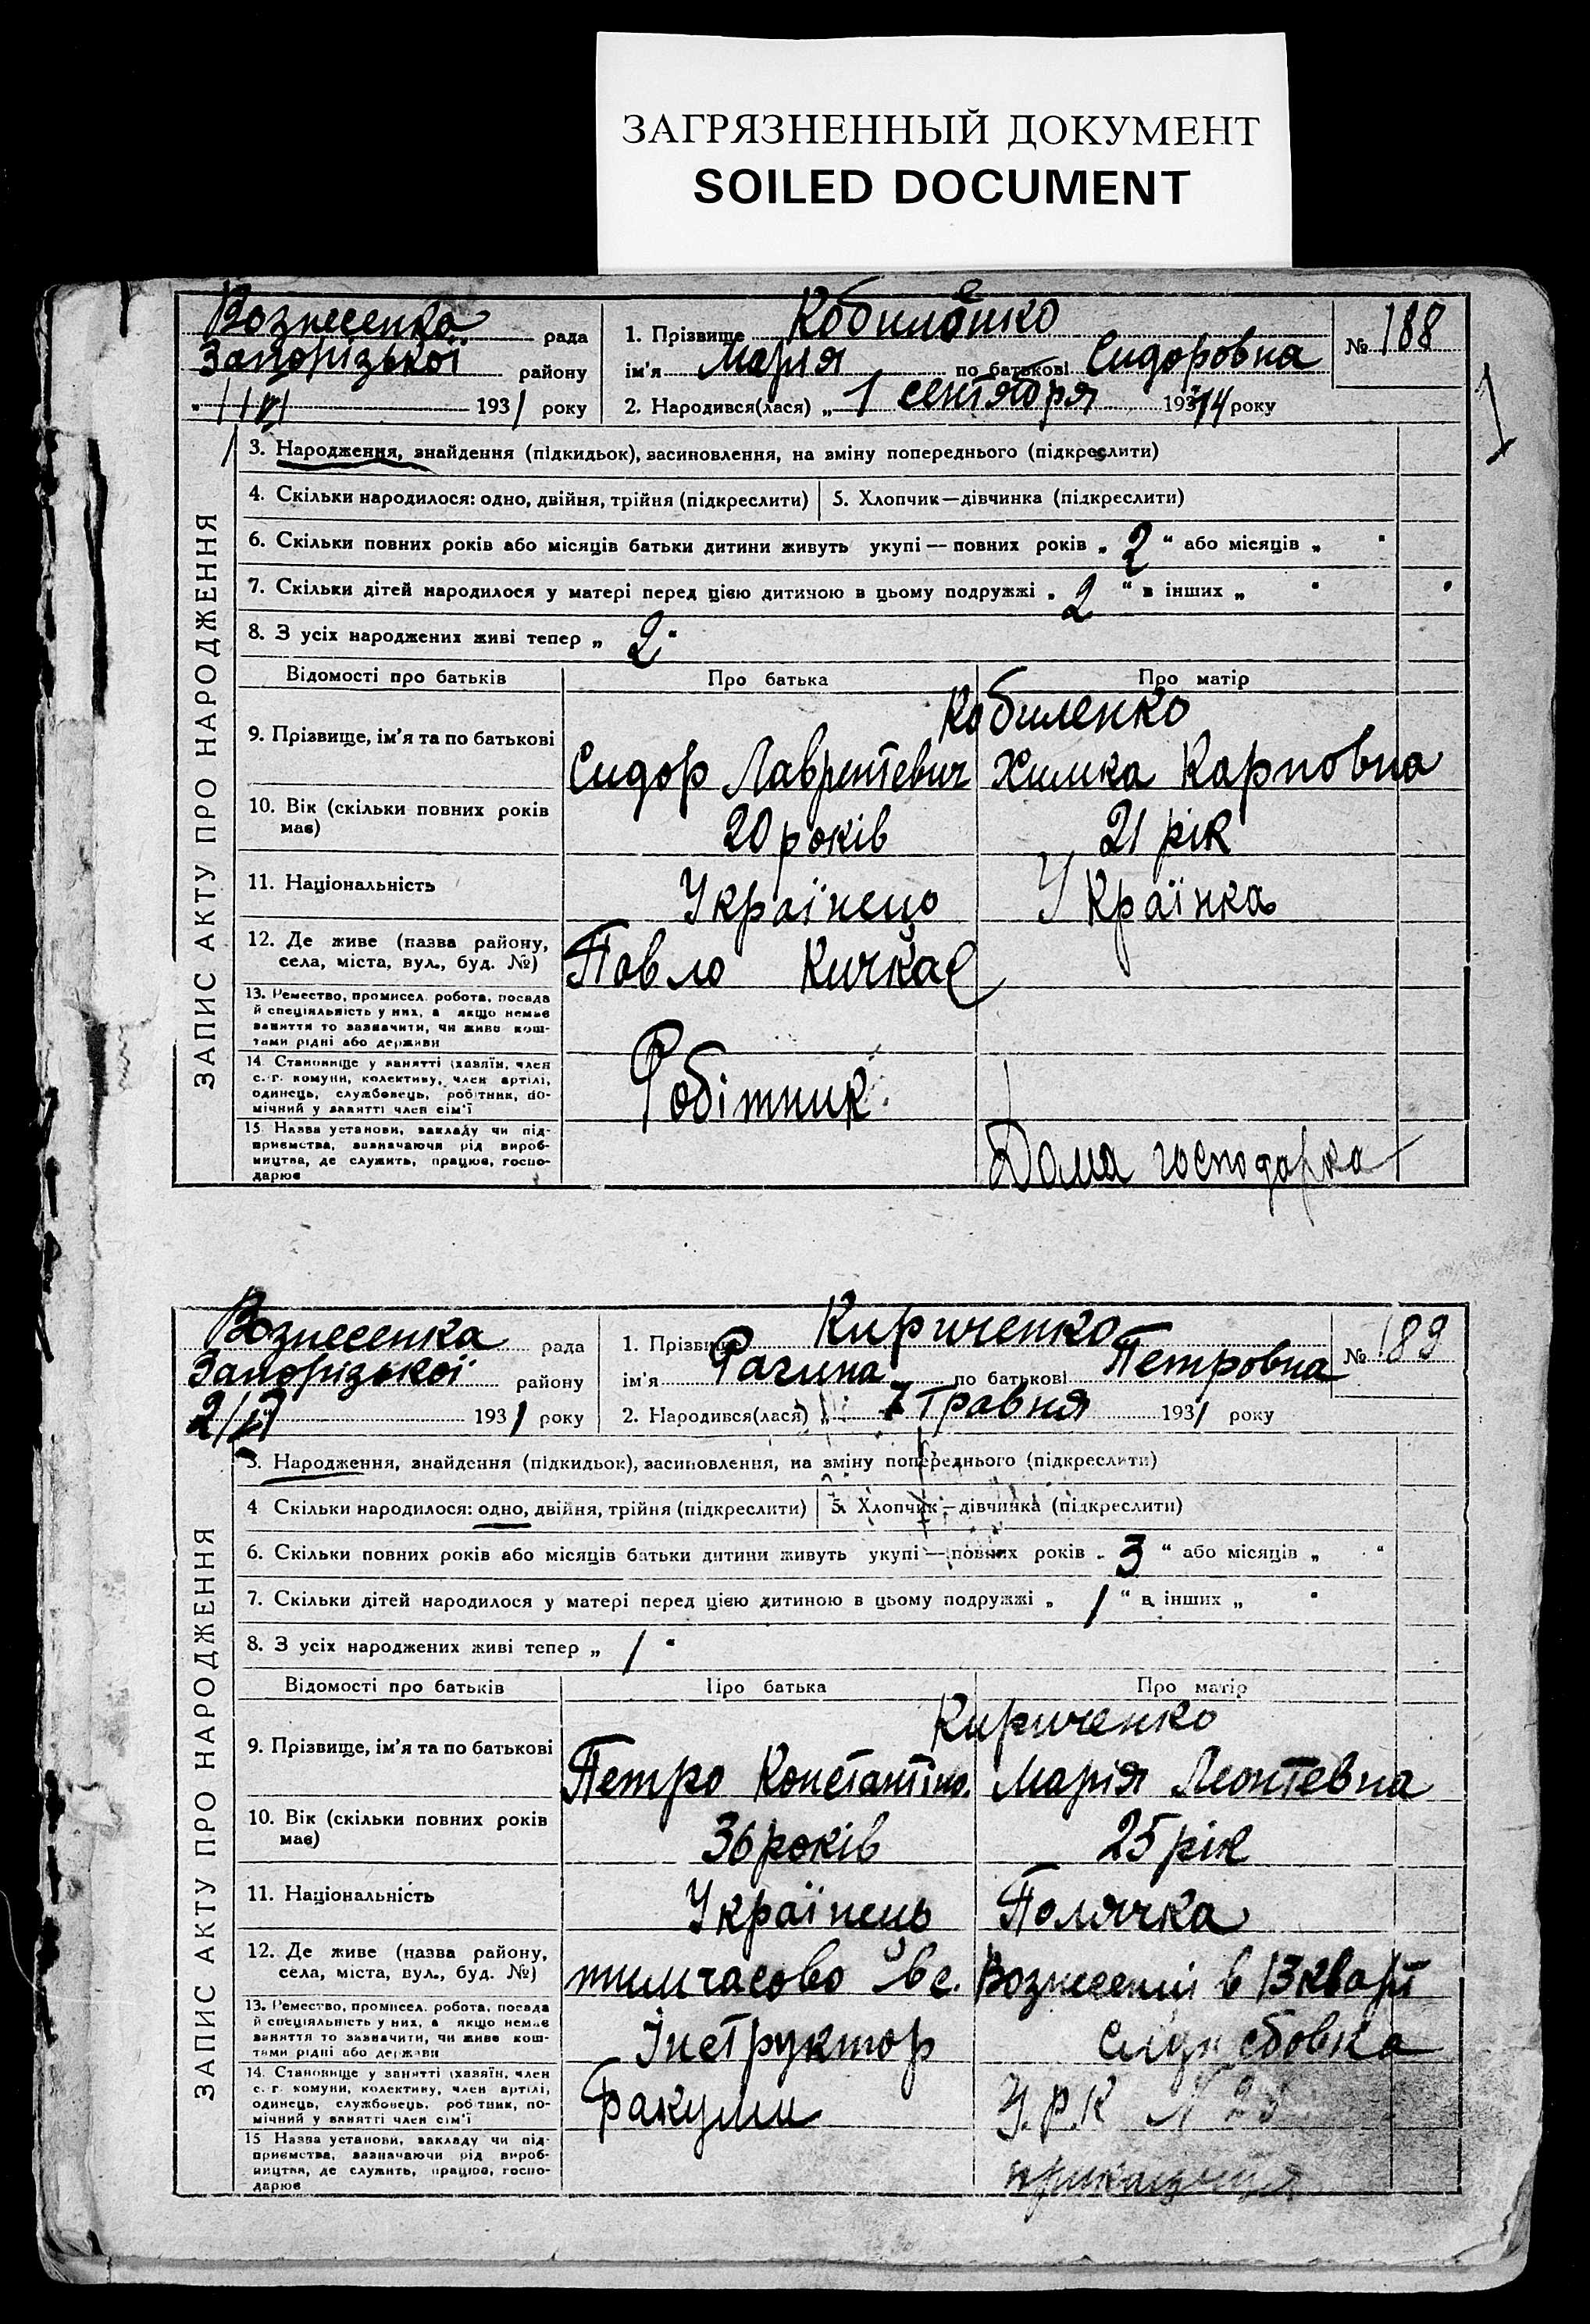 ЗАГРЯЗНЕННЫЙ ДОКУМЕНТ
SOILED DOCUMENT
Вознесенка рада
Запорізької району
1/VI 1931 року
1. Прізвище Кобиленко
ім'я Марія по батькові Сидоровна
2. Народився(лася) „ 1 сентября 1914 року
№ 188
1
ЗАПИС АКТУ ПРО НАРОДЖЕННЯ
3. Народження, знайдення (підкидьок), засиновлення, на зміну попереднього (підкреслити)
4. Скільки народилося: одно, двійня, трійня (підкреслити) 5. Хлопчик—дівчинка (підкреслити)
6. Скільки повних років або місяців батьки дитини живуть укупі — повних років „ 2 “ або місяців „ “
7. Скільки дітей народилося у матері перед цією дитиною в цьому подружжі „ 2 “ в інших „ “
8. З усіх народжених живі тепер „ 2 “
Відомості про батьків Про батька Про матір
Кобиленко
9. Прізвище, ім'я та по батькові Сидор Лаврентевич Химка Карповна
10. Вік (скільки повних років має) 20 років 21 рік
11. Національність Українець Українка
12. Де живе (назва району, села, міста, вул., буд. №) Павло Кичкас
13. Ремество, промисел, робота, посада
й спеціяльність у них, а якщо немає
заняття то зазначити, чи живе кош-
тами рідні або держави
14. Становище у занятті (хазяїн, член
с.-г. комуни, колективу, член артілі,
одинець, службовець, робітник, по-
мічний у занятті член сім'ї
Робітник
15. Назва установи, закладу чи під-
приємства, зазначаючи рід вироб-
ництва, де служить, працює, госпо-
дарює
Дома господарка
Вознесенка рада
Запорізької району
2/VI 1931 року
1. Прізвище Кириченко
ім'я Рагина по батькові Петровна
2. Народився(лася) „ 7 Травня 1931 року
№ 189
ЗАПИС АКТУ ПРО НАРОДЖЕННЯ
3. Народження, знайдення (підкидьок), засиновлення, на зміну попереднього (підкреслити)
4 Скільки народилося: одно, двійня, трійня (підкреслити) 5. Хлопчик—дівчинка (підкреслити)
6. Скільки повних років або місяців батьки дитини живуть укупі — повних років „ 3 “ або місяців „ “
7. Скільки дітей народилося у матері перед цією дитиною в цьому подружжі „ 1 “ в інших „ “
8. З усіх народжених живі тепер „ 1 “
Відомості про батьків Про батька Про матір
Кириченко
9. Прізвище, ім'я та по батькові Петро Константіно. Марія Леонтевна
10. Вік (скільки повних років має) 36 років 25 рік
11. Національність Українець Полячка
12. Де живе (назва району, села, міста, вул., буд. №) тимчасово в с. Вознесенці в 13 кварт
13. Ремество, промисел, робота, посада
й спеціяльність у них, а якщо немає
заняття то зазначити, чи живе кош-
тами рідні або держави
Інструктор службовка
14. Становище у занятті (хазяїн, член
с.-г. комуни, колективу, член артілі,
одинець, службовець, робітник, по-
мічний у занятті член сім'ї
У.Р.К N
15 Назва установи, закладу чи під-
приємства, зазначаючи рід вироб-
ництва, де служить, працює, госпо-
дарює